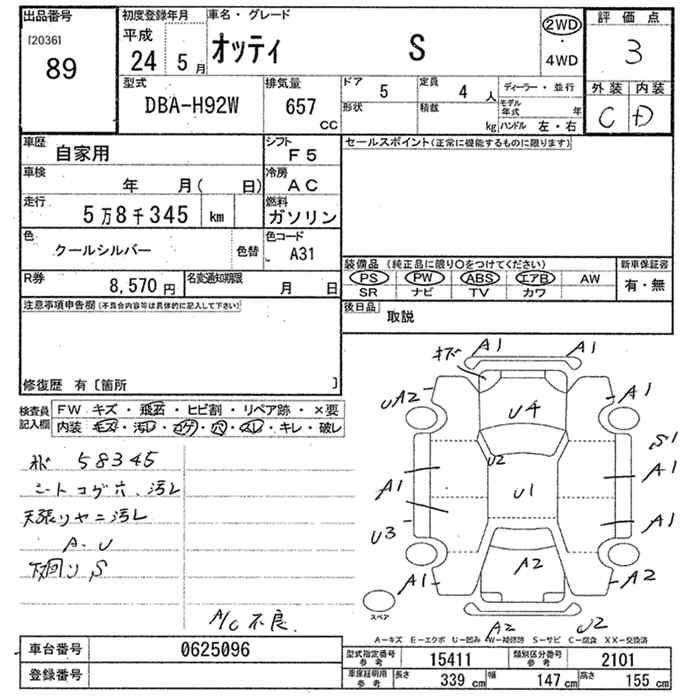 出品番号 初度登録年月 車名・グレード 2WD 評価点
[2036] 平成
89 24 5月 オッティ S ・ 4WD 3
型式 排気量 ドア 5 定員 4人 ディーラー・並行 外装 内装
DBA-H92W 657 CC 形状 積載 kg モデル年式 年 C D
ハンドル 左・右
車歴 自家用 シフト F5 セールスポイント(正常に機能するものに限ります)
車検 年 月( 日) 冷房 AC
走行 5万8千345 km 燃料 ガソリン
色 クールシルバー 色替 色コード A31
装備品 (純正品に限り○をつけてください) 新車保証書
R券 8,570円 名変通知期限 月 日 PS PW ABS エアB AW 有・無
SR ナビ TV カワ
注意事項申告欄(不具合内容等は具体的に記入して下さい) 後日品 取説
修復歴 有〔箇所 〕
検査員記入欄 FW キズ・飛石・ヒビ割・リペア跡・×要
内装 キズ・汚レ・コゲ・穴・スレ・キレ・破レ
58345
シートコゲ穴、汚レ
天張りヤニ汚レ
A・U
下回りS
A/C不良
A1 A1
UA2 A1
U4
U2 S1
A1 U1 A1
U3 A1
A1 A2 A2
A2 U2
スペア
A-キズ E-エクボ U-凹み W-補修跡 S-サビ C-腐食 XX-交換済
車台番号 0625096 型式指定番号 参考 15411 類別区分番号 参考 2101
登録番号 車庫証明用 参考 長さ 339cm 幅 147cm 高さ 155cm